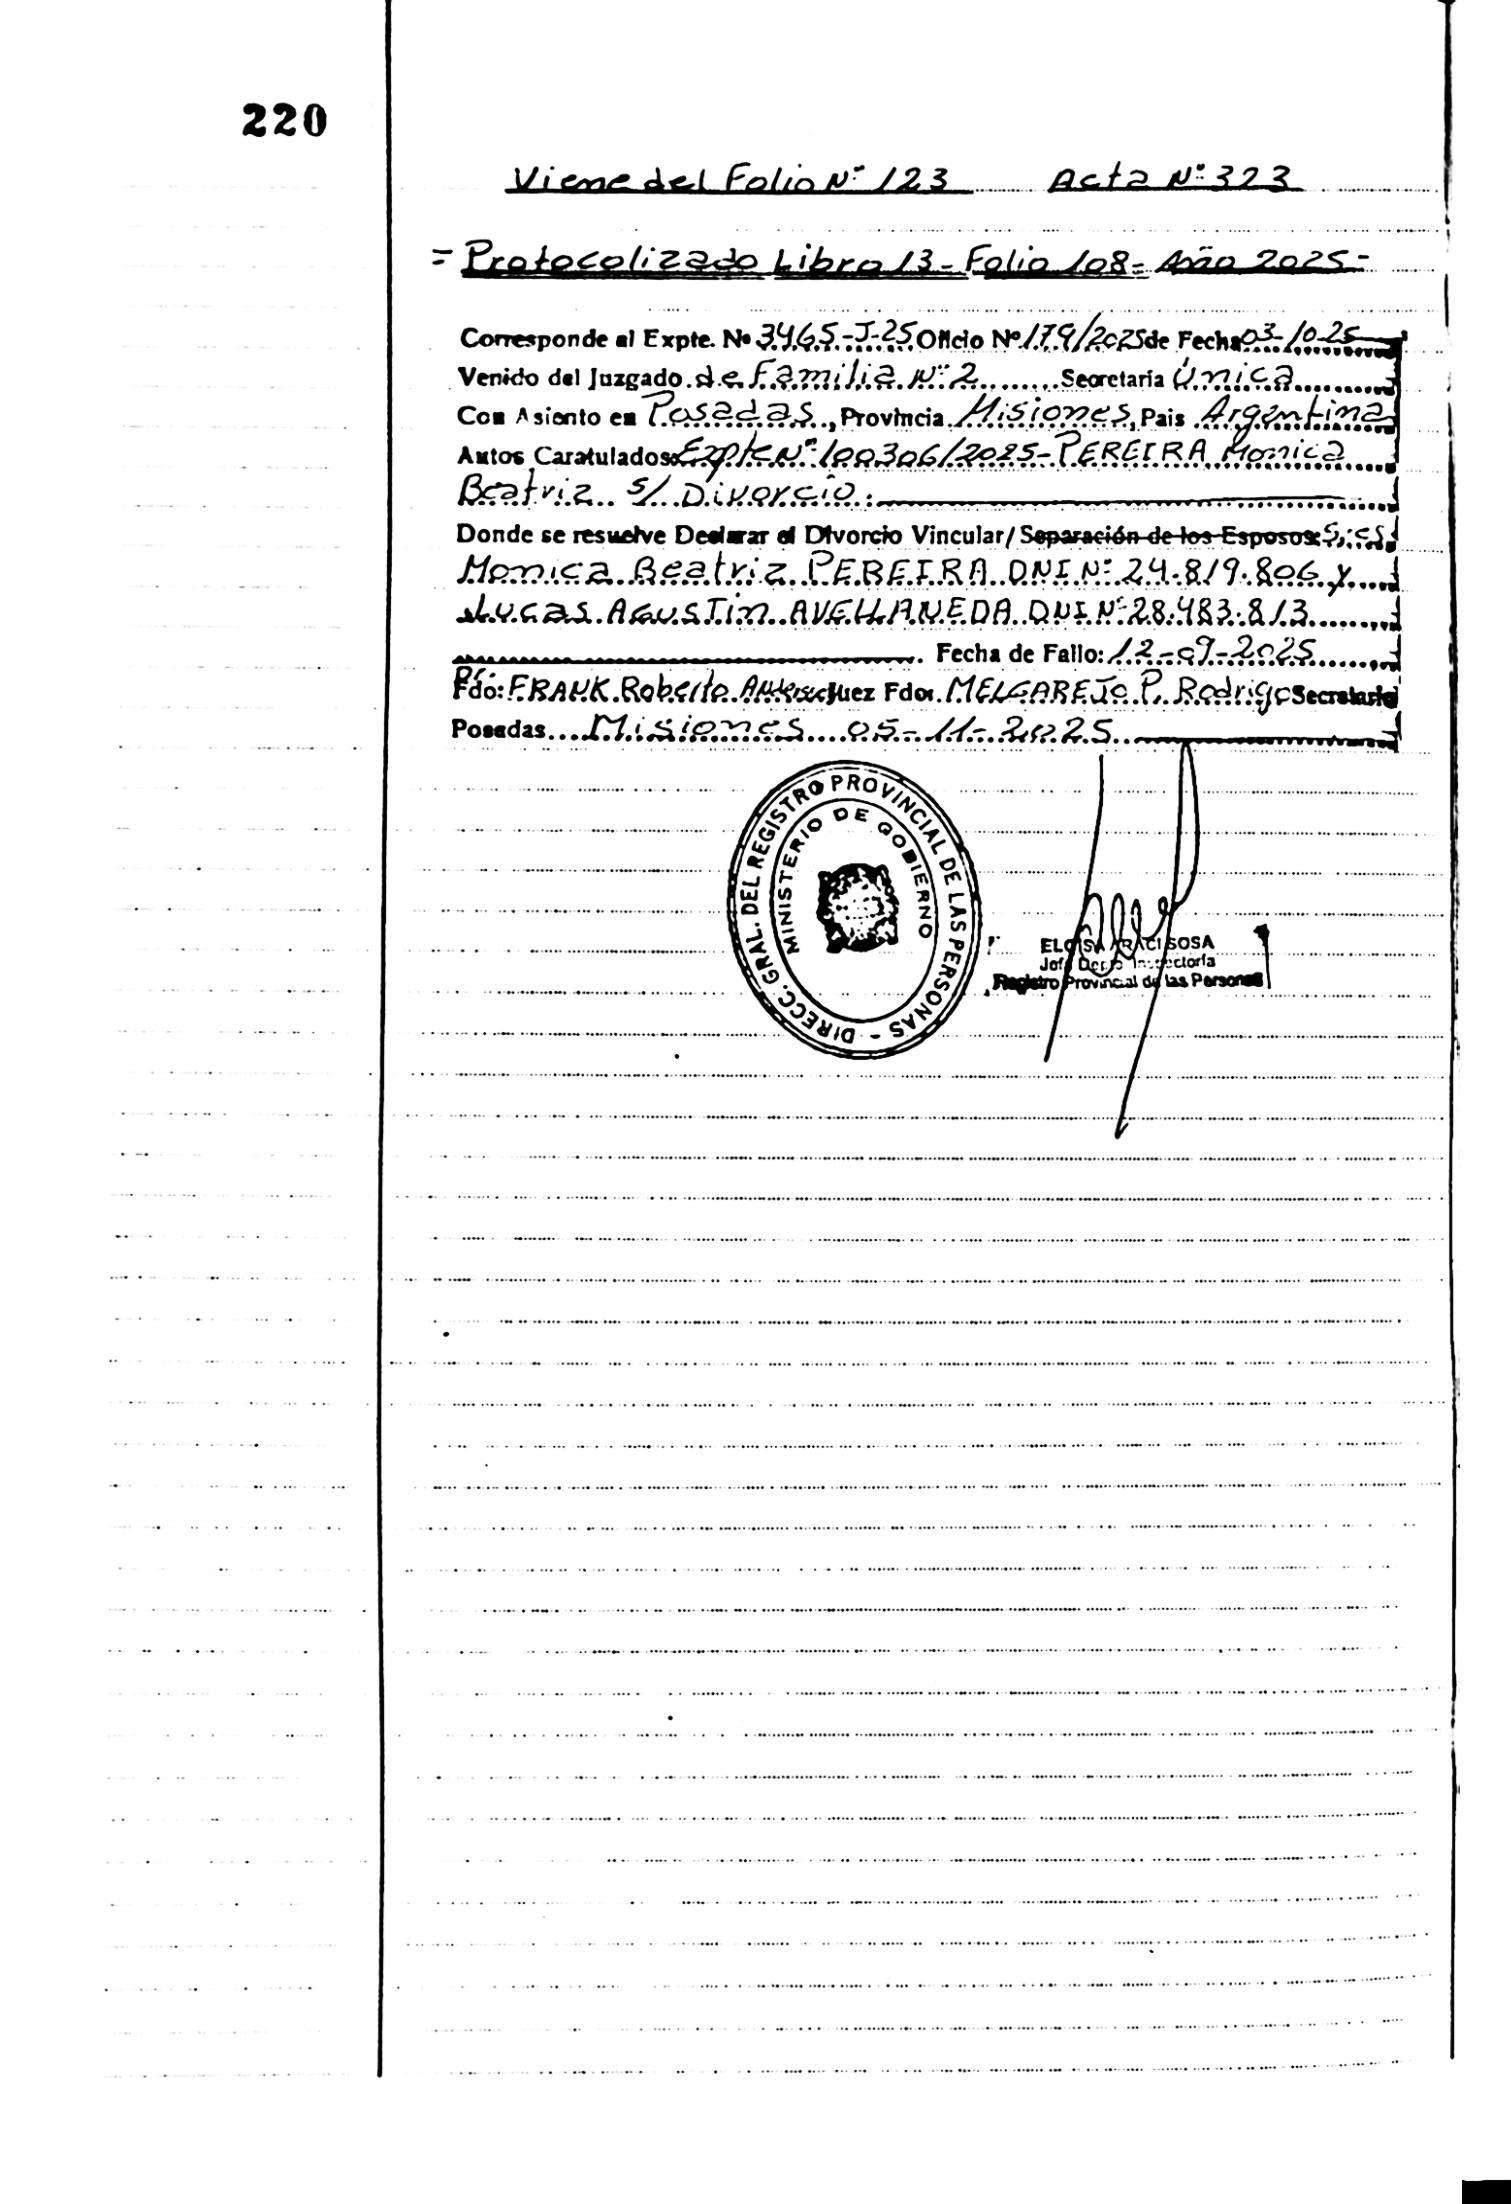 220
Viene del Folio Nº 123 Acta Nº 323
= Protocolizado Libro 13 - Folio 108 - Año 2025 -
Corresponde al Expte. Nº 3465-J-25 Oficio Nº 179/2025 de Fecha 03-10-25
Venido del Juzgado de Familia Nº 2 Secretaría Única
Con Asiento en Posadas, Provincia Misiones, Pais Argentina
Autos Caratulados: Expte Nº 100306/2025 - PEREIRA Monica
Beatriz s/ Divorcio.
Donde se resuelve Declarar el Divorcio Vincular/ Separación de los Esposos: S.res
Monica Beatriz PEREIRA DNI Nº 24.819.806 y
Lucas Agustin AVELLANEDA DNI Nº 28.483.813
Fecha de Fallo: 12-09-2025
Fdo: Dr. FRANK Roberto Juez Fdo: MELGAREJO P. Rodrigo Secretario
Posadas Misiones 05-11-2025
DIRECC. GRAL. DEL REGISTRO PROVINCIAL DE LAS PERSONAS -
MINISTERIO DE GOBIERNO
ELOISA ARACI SOSA
Jefe Depto Inspectoría
Registro Provincial de las Personas